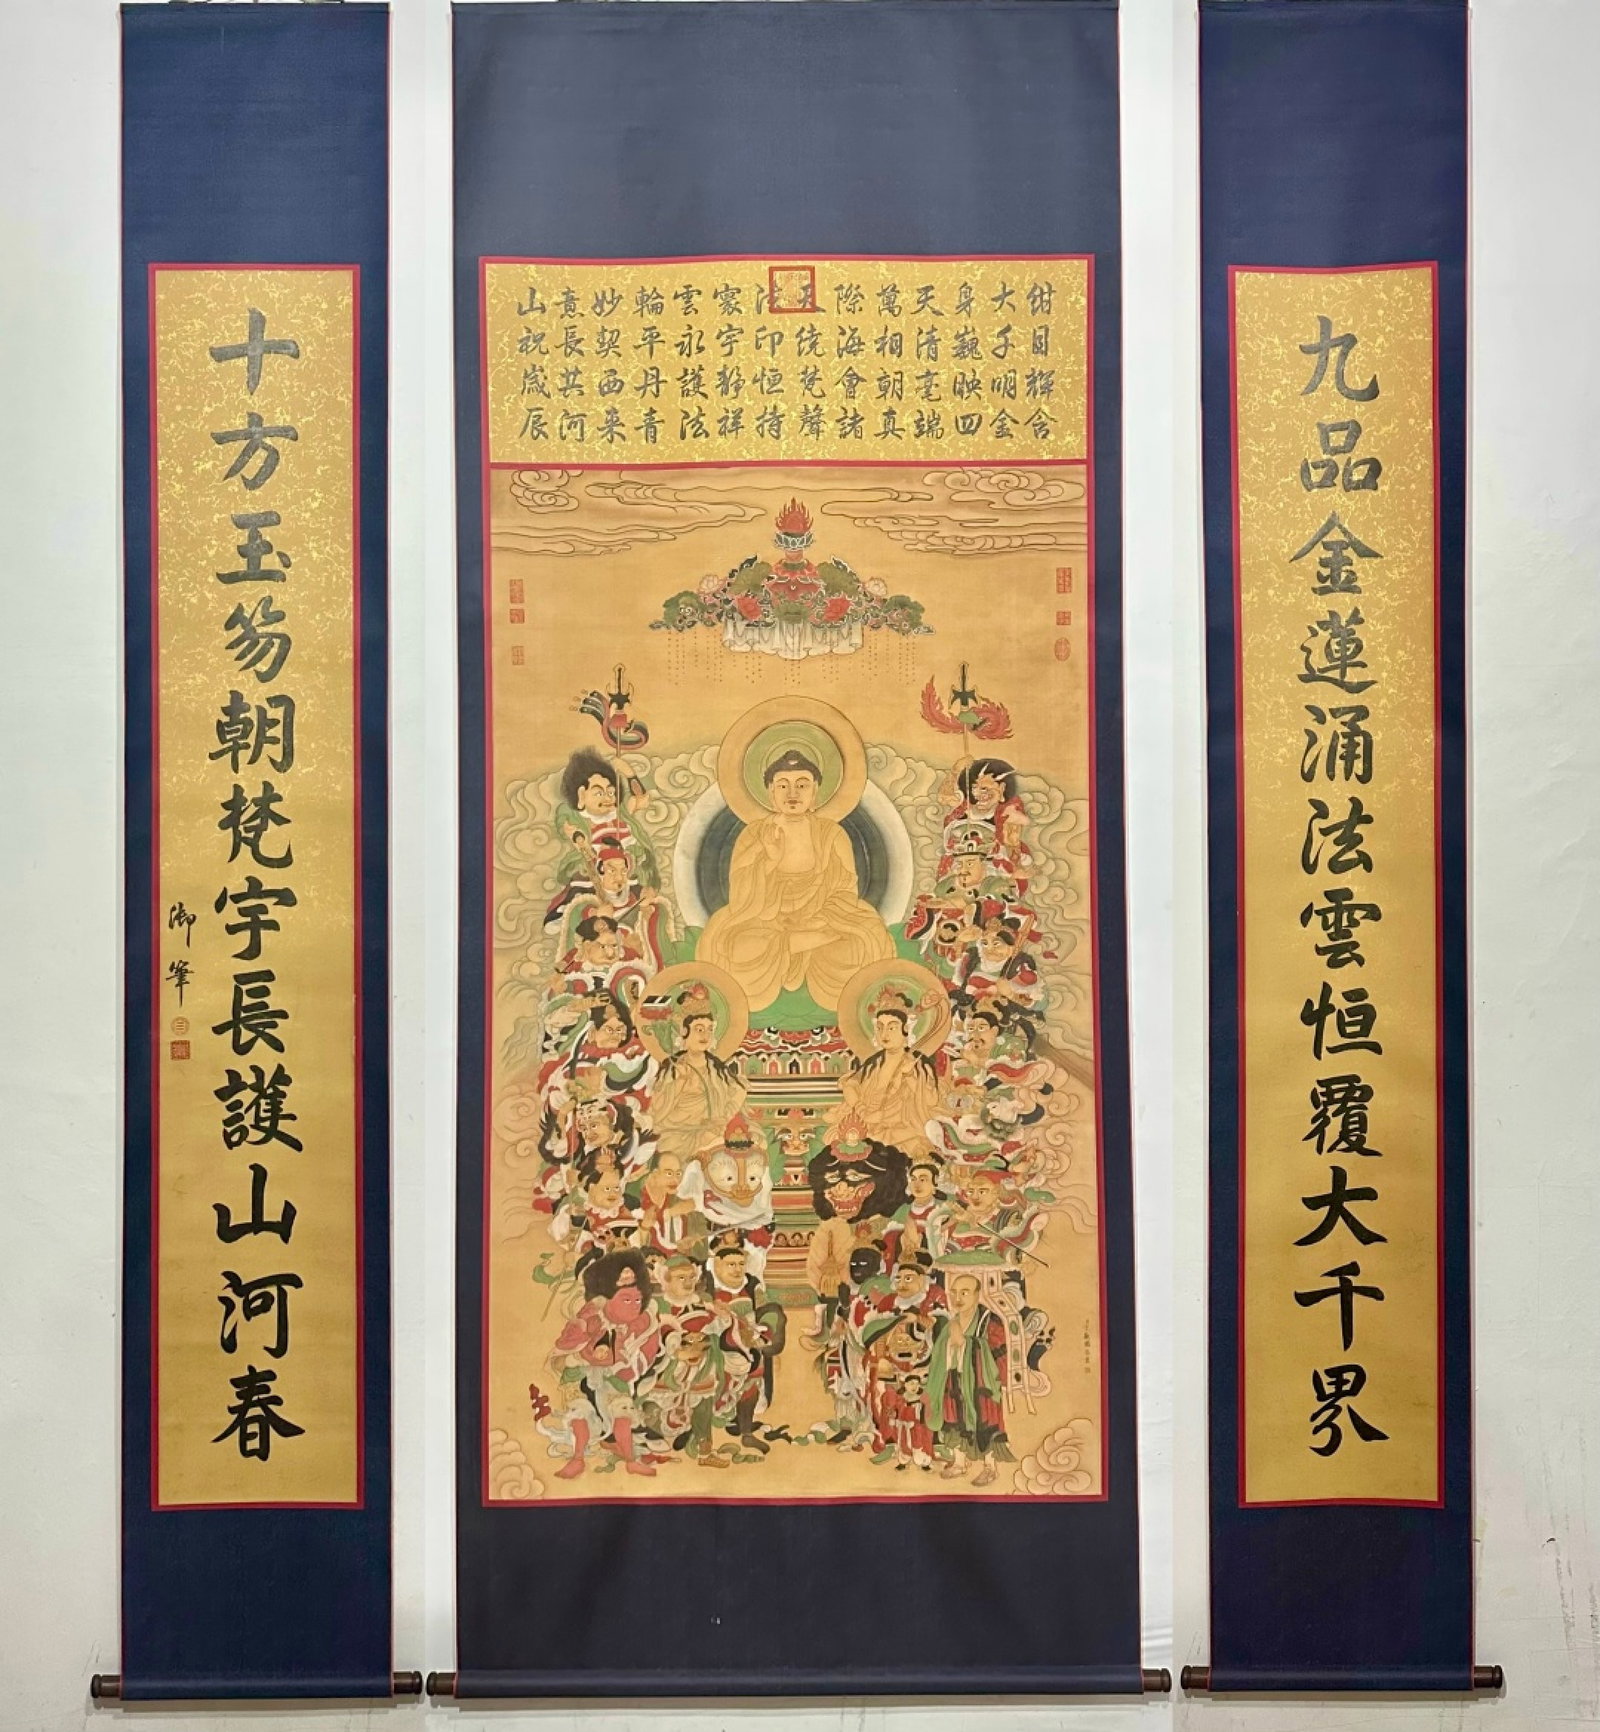 九品金蓮涌法雲恒覆大千界
紺目輝含
大千明金
身巍映四
天清毫端
萬相朝真
際海會諸
天繞梵聲
法印恒持
寰宇靜祥
雲永護法
輪平丹青
妙契西来
意長共河
山祝歲辰
十方玉笏朝梵宇長護山河春
御筆